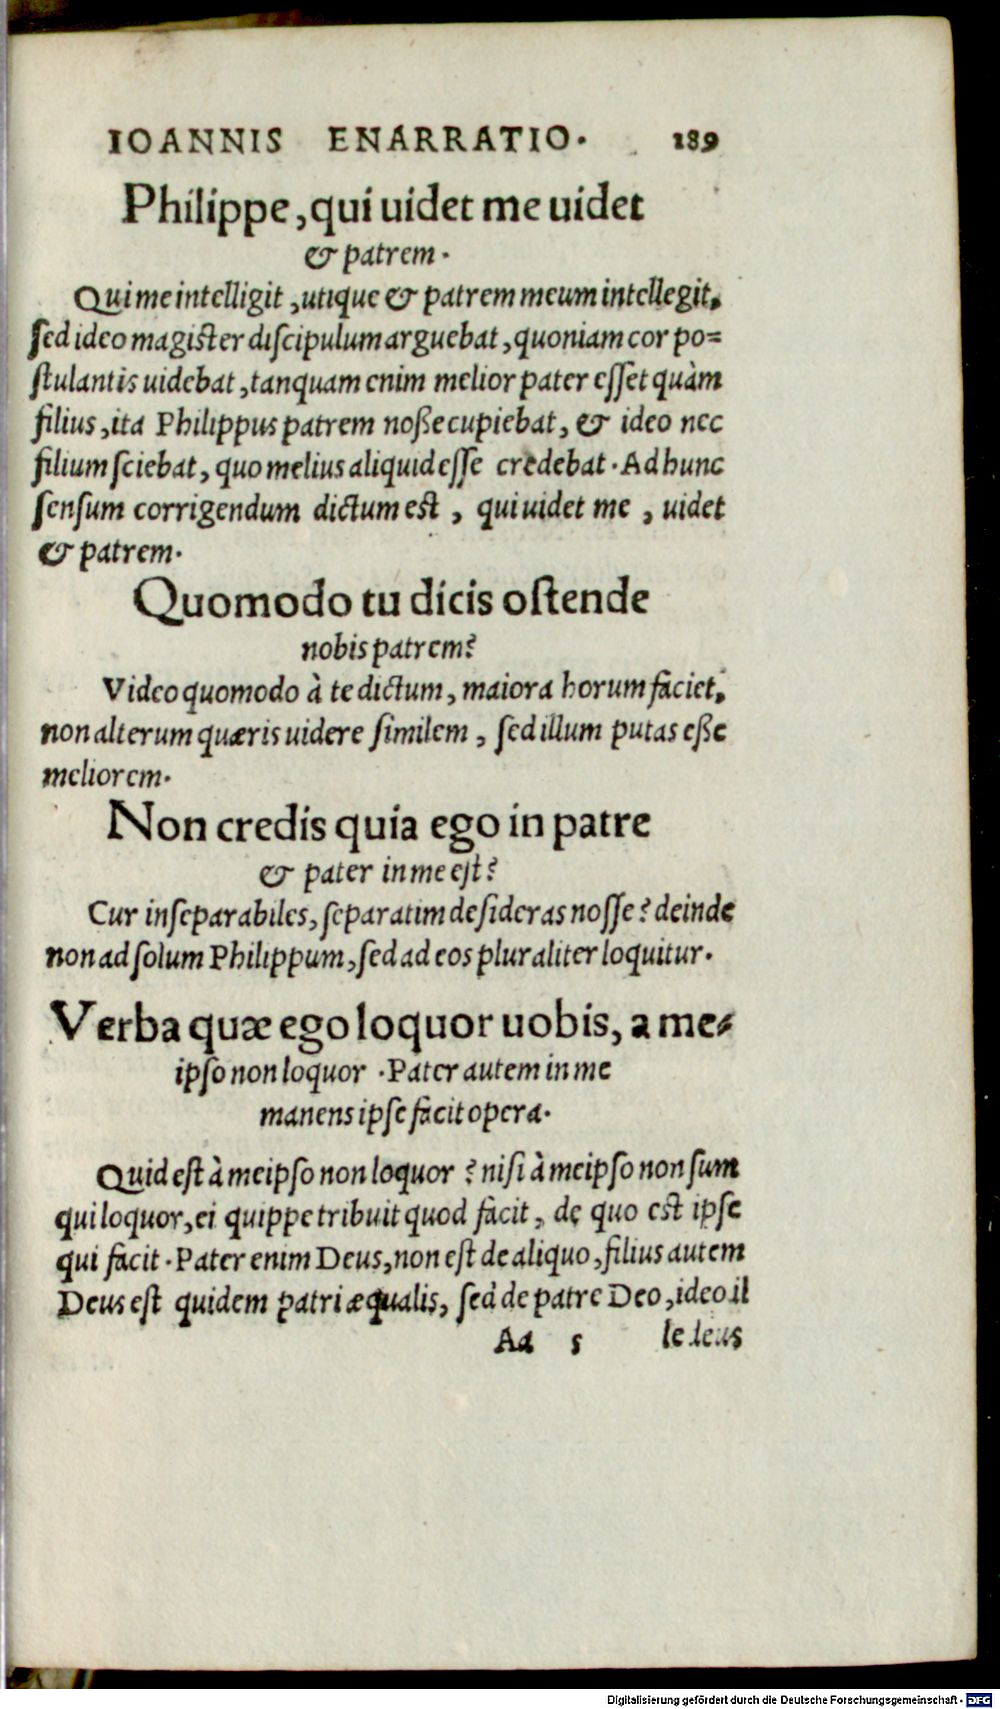 IOANNIS ENARRATIO. 189
Philippe, qui uidet me uidet
& patrem.
Qui me intelligit, utique & patrem meum intellegit,
sed ideo magister discipulum arguebat, quoniam cor po=
stulantis uidebat, tanquam enim melior pater esset quàm
filius, ita Philippus patrem noße cupiebat, & ideo nec
filium sciebat, quo melius aliquid esse credebat. Ad hunc
sensum corrigendum dictum est, qui uidet me, uidet
& patrem.
Quomodo tu dicis ostende
nobis patrem?
Video quomodo à te dictum, maiora horum faciet,
non alterum quæris uidere similem, sed illum putas eße
meliorem.
Non credis quia ego in patre
& pater in me est?
Cur inseparabiles, separatim desideras nosse? deinde
non ad solum Philippum, sed ad eos pluraliter loquitur.
Verba quæ ego loquor uobis, a me=
ipso non loquor. Pater autem in me
manens ipse facit opera.
Quid est à meipso non loquor? nisi à meipso non sum
qui loquor, ei quippe tribuit quod facit, de quo est ipse
qui facit. Pater enim Deus, non est de aliquo, filius autem
Deus est quidem patri æqualis, sed de patre Deo, ideo il
Aa 5 le deus
Digitalisierung gefördert durch die Deutsche Forschungsgemeinschaft - DFG